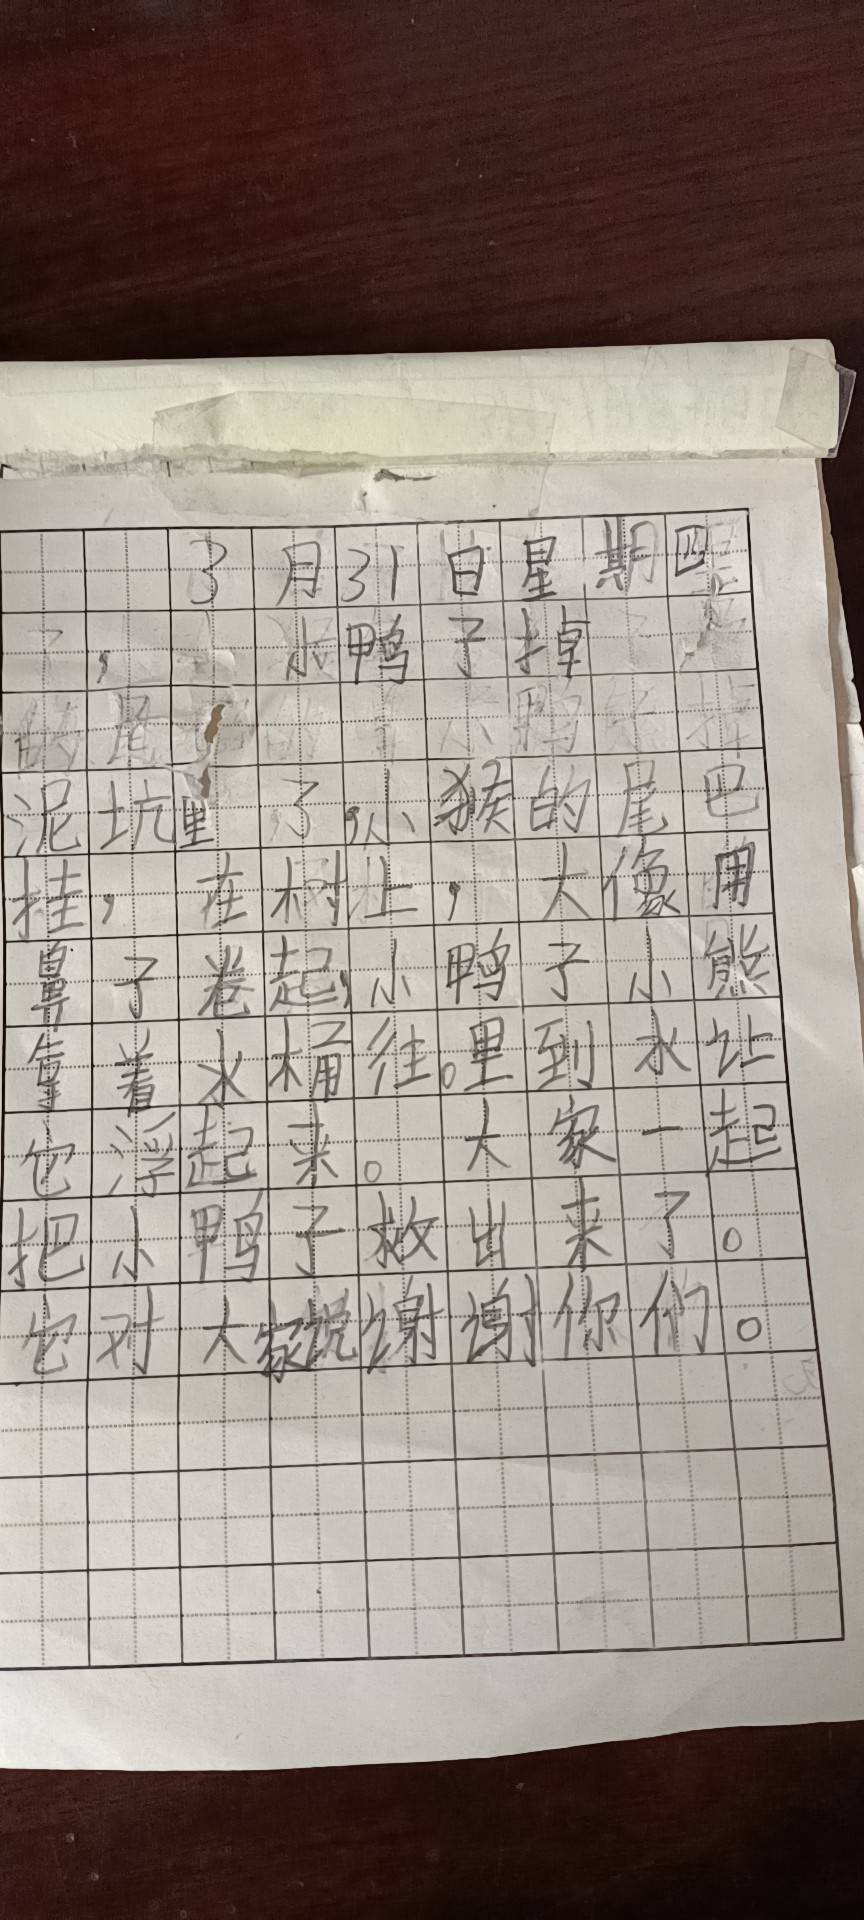 3月31日星期四
小鸭子掉
泥坑里了,小猴的尾巴
挂,在树上,大像用
鼻子卷起,小鸭子小熊
着水桶往。里到水让
它浮起来。大家一起
把小鸭子救出来了。
它对大家说谢谢你们。